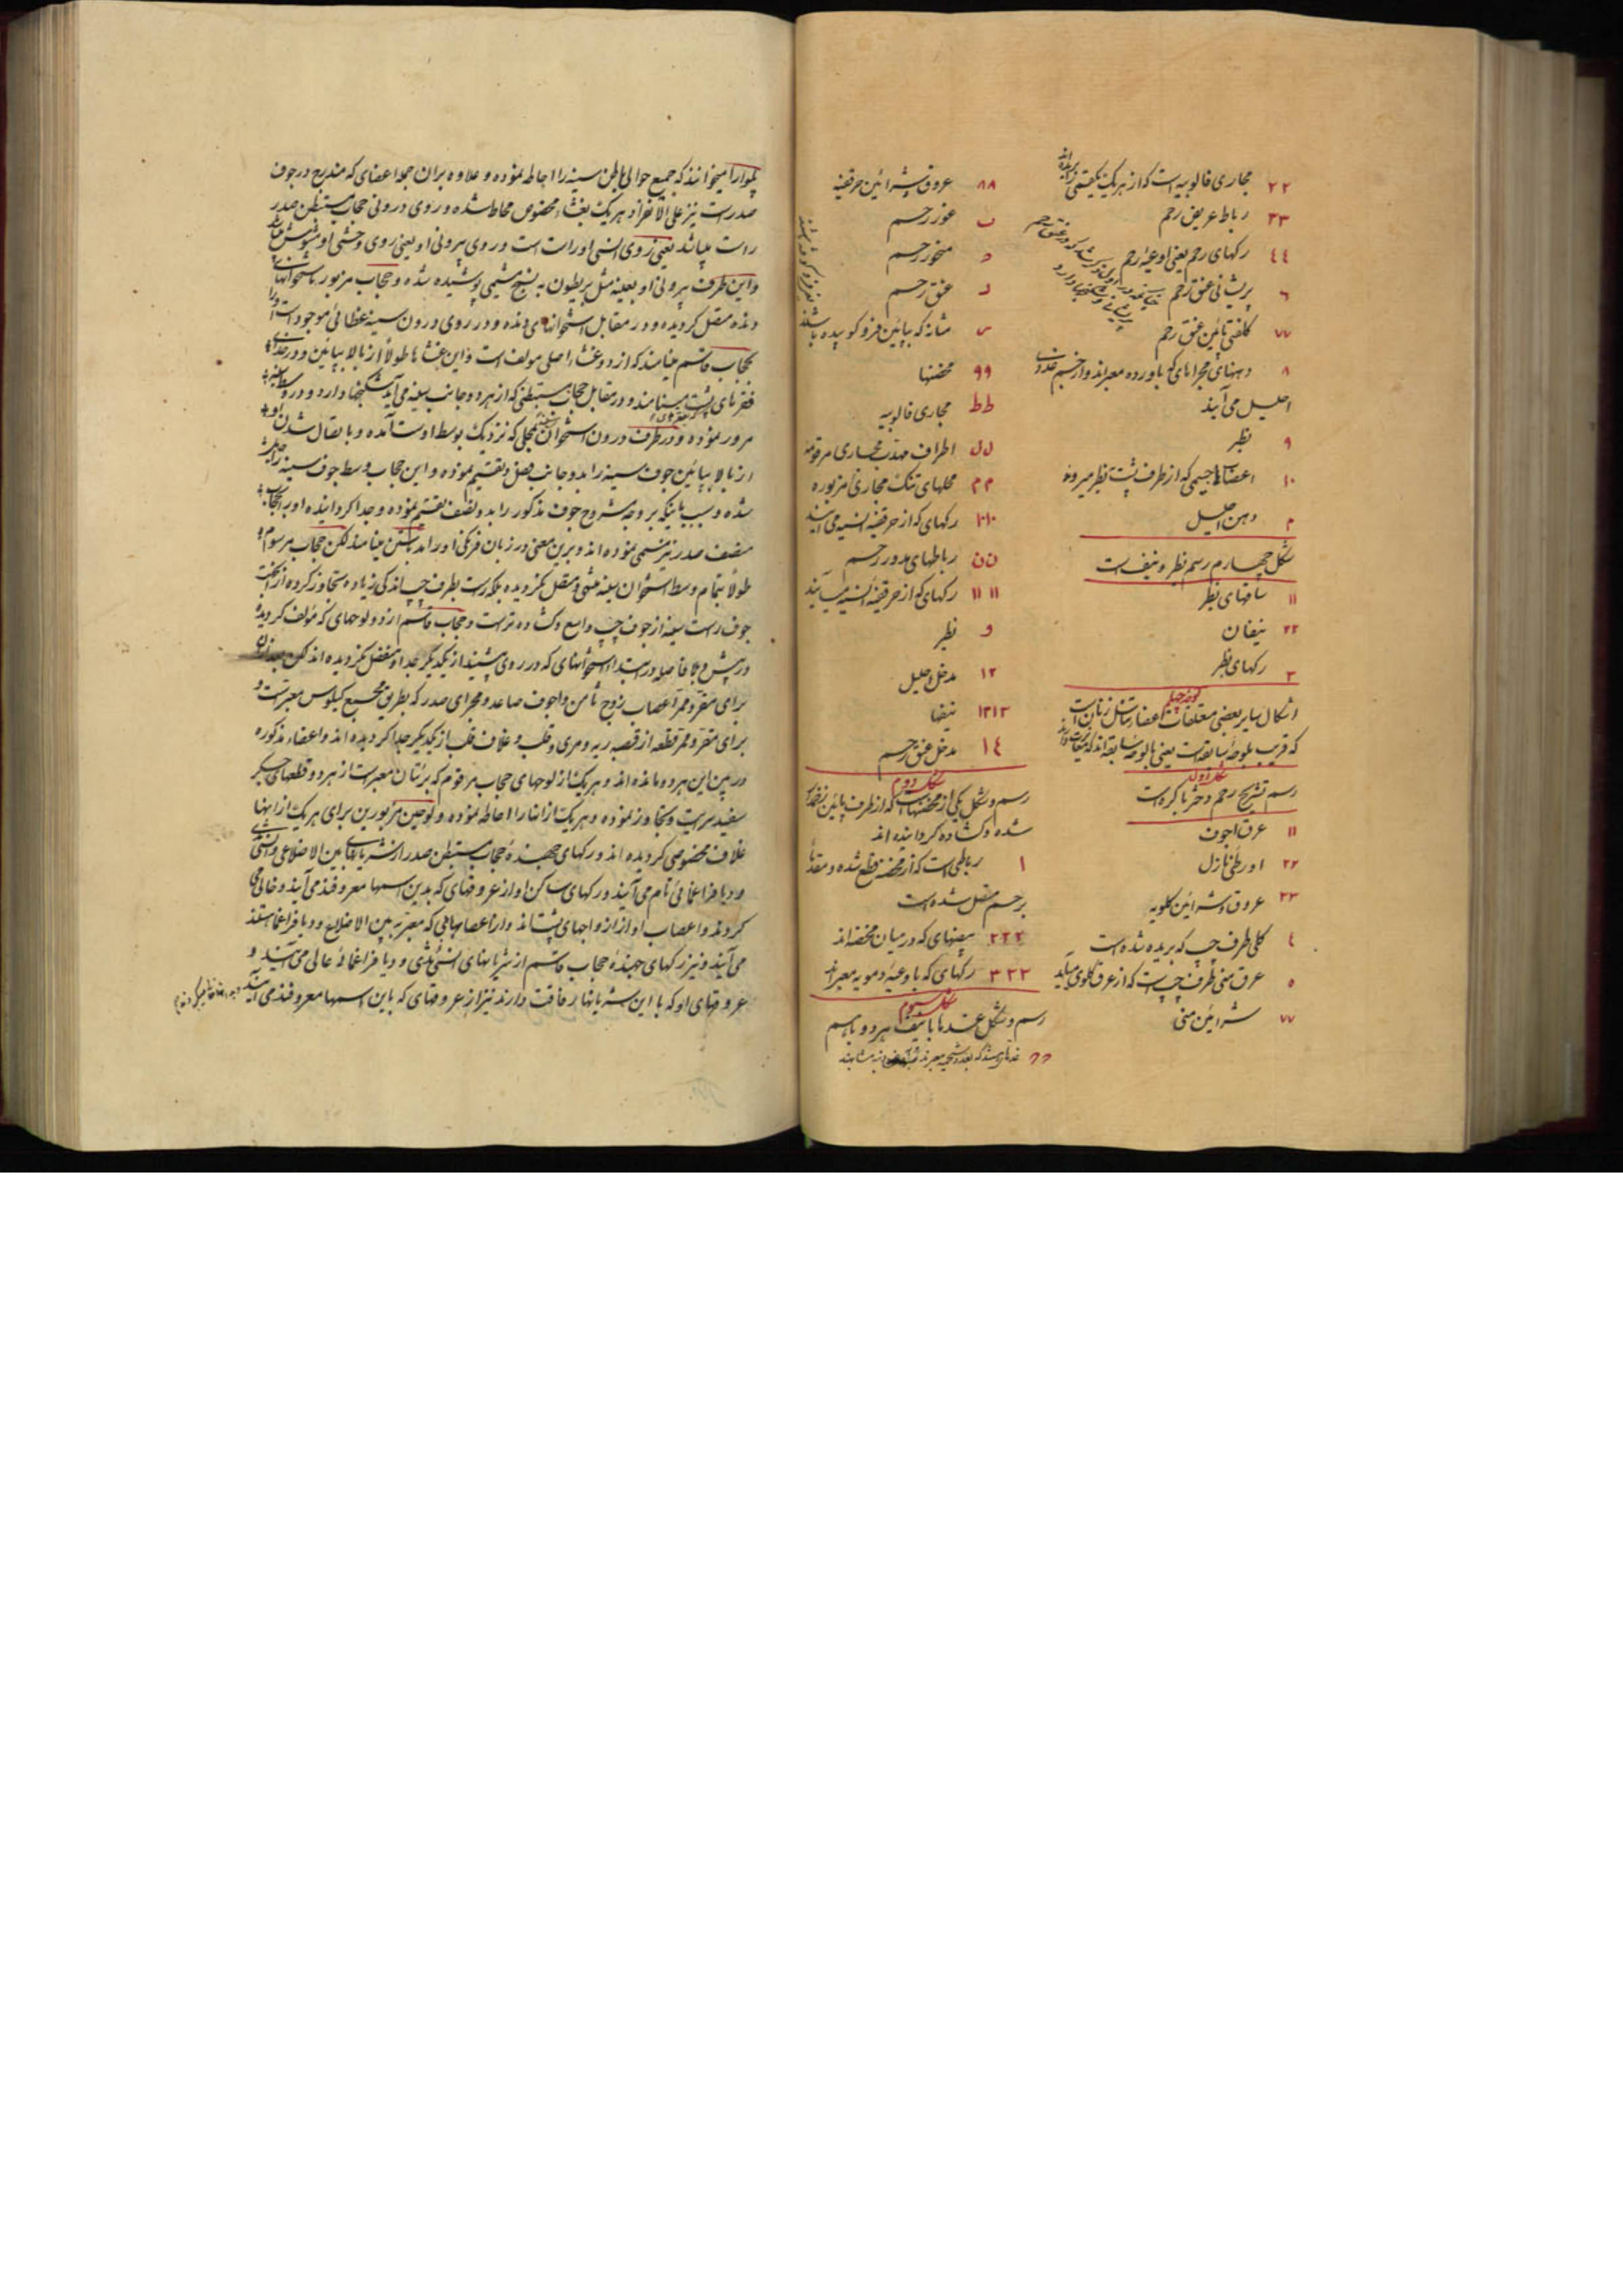 ۲۲ مجاری فالوپیه است که از هر یک یکقسمتی بریده اند
۳۳ رباط عریض رحم
٤٤ رکهای رحم یعنی اوعیهٔ رحم
٦ پریشانی عنق رحم
۷۷ کلفتی پائین عنق رحم
۸ دهنهای مجراهای که باورده معبراند و از جسم غددی
احلیل می آیند
۹ بظر
۱۰ اعضاهای جسیمی که از طرف پشت بظر میروند
م دهن احلیل
شکل چهارم رسم بظر و نیفست
۱۱ ساقهای بظر
۲۲ نیفان
۳ رکهای بظر
اشکال سایر بعضی متعلقات اعضای تناسل زنان است
که قریب بلوحهٔ سابقه است یعنی بالوحهٔ سابقه اند
شکل اول
رسم تشریح رحم دختر باکره است
۱۱ عرق اجوف
۲۲ اورطی نازل
۳۳ عروق و شرائین کلویه
٤ کلی طرف چپ که بریده شده است
۵ عرق منی طرف چپ است که از عرق کلوی میآید
۷۷ شرائین منی
۸۸ عروق و شرائین حرقفیه
ب غور رحم
د منخور رحم
د عنق رحم
س مثانه که بپائین فرو کوبیده باشند
۹۹ محضنها
ط ط مجاری فالوپیه
ل ل اطراف مهدب مجاری مرقومه
م م محلهای تنک مجاری مزبوره
۱۰۱۰ رکهای که از حرقفیه انسیه می آیند
ن ن رباطهای مدور رحم
۱۱ ۱۱ رکهای که از حرقفیهٔ انسیه میآیند
و بظر
۱۲ مدخل احلیل
۱۳۱۳ نیفها
۱٤ مدخل عنق رحم
شکل دوم
رسم و شکل یکی از محضنهاست که از طرف پائین
شده و کشاده کردانیده اند
۱ رباطی است که از محضنه قطع شده و مقدماً
برحم متصل شده است
۲۲۲ بیضهای که در میان محضنه اند
۳۳۳ رکهای که باوعیهٔ دمویه معبراند
شکل سیوم
رسم و شکل غددها با نیف هر دو باهم
پلورا میخوانند که جمیع حوالی باطن سینه را احاطه نموده و علاوه بران جمله اعضای که مندرج در جوف
صدرست نیز علی الانفراد هر یک بغشاء مخصوص محاط شده و روی درونی حجاب مستبطن صدر
راست میباشد یعنی روی انسی او راست است و روی بیرونی او یعنی روی وحشی او
و این طرف بیرونی او بعینه مثل بریطون به نسج مشیمی پوشیده شده و حجاب مزبور باستخوانهای
دنده متصل کردیده و در مقابل استخوانهای دنده و در روی درون سینه عظائی موجود است
حجاب قاسم مینامند که از دو غشاء اصلی مولف است و این غشاها طولاً از بالا بپائین و در
فقرهای پشت مینامند و در مقابل حجاب مستبطنی که از هر دو جانب سینه می آید شکنجها دارد و در وسط سینه
مرور نموده و در طرف درون استخوان بمحلی که نزدیک بوسط اوست آمده و باتصال شدن او
از بالا بپائین جوف سینه را بدو جانب فصل و تقسیم نموده و این حجاب وسط جوف سینه را
شده و سبب بانیکه بر وجه مشروح جوف مذکور را بدو نصف تقسیم نموده و جدا کردانیده او را بحجاب
منصف صدر نیز مسمی نموده اند و برین معنی در زبان فرنکی او را مدیاستن مینامند لکن حجاب مرسوم
طولاً بتمام وسط استخوان سینه منتهی و متصل نکردیده بلکه راست بطرف چپ اندکی زیاده تجاوز کرده ازینجهت
جوف راست سینه از جوف چپ واسع و کشاده تر است و حجاب قاسم از دو لوحهای که مؤلف کردیده
در پیش و بلا فاصله در ابتداء استخوانهای که در روی پشتند از یکدیگر جدا و منفصل نکردیده اند لکن بعد از آن
برای مقر و ممر اعصاب زوج ثامن و اجوف صاعد و مجرای صدر که بطریق مجمع کیلوس معبر است و
برای مقر و ممر قطعه از قصبه ریه و مری و قلب و غلاف قلب از یکدیگر جدا کردیده اند و اعضاء مذکوره
در بین این هر دو مانده اند و هر یک از لوحهای حجاب مرقوم که برئتان معبر است از هر دو قطعهای جکر
سفید سرایت و تجاوز نموده و هر یک از انها را احاطه نموده و لوحین مزبورین برای هر یک از انها
غلاف مخصوصی کردیده اند و رکهای جهندهٔ حجاب مستبطن صدر از شریانهای بین الاضلاعی و انسی ثدی
و دیافراغمائی تام می آیند و رکهای ساکن او از عروقهای که بدین اسمها معروفند می آیند و خالی می
کردند و اعصاب او از ازواجهای پشت اند و از اعصابهایی که معبر به بین الاضلاع و دیافراغما هستند
می آیند و نیز رکهای جهندهٔ حجاب قاسم از شریانهای انسی ثدی و دیافراغمائهٔ عالی می آیند و
عروقهای او که با این شریانها رفاقت دارند نیز از عروقهای که باین اسمها معروفند می آیند